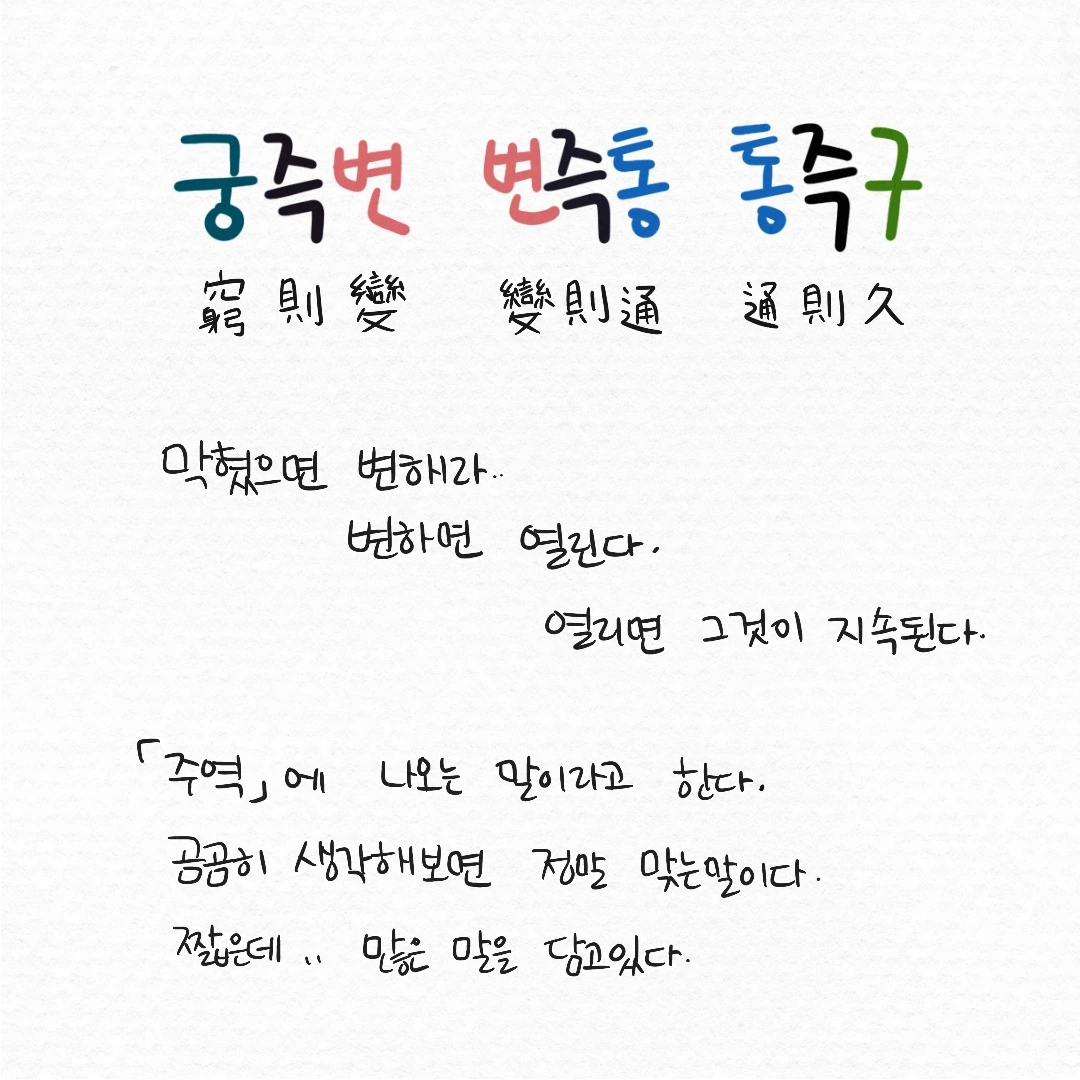 궁즉변 변즉통 통즉구
窮則變 變則通 通則久
막혔으면 변해라..
변하면 열린다.
열리면 그것이 지속된다.
「주역」에 나오는 말이라고 한다.
곰곰히 생각해보면 정말 맞는말이다.
짧은데.. 많은 말을 담고있다.